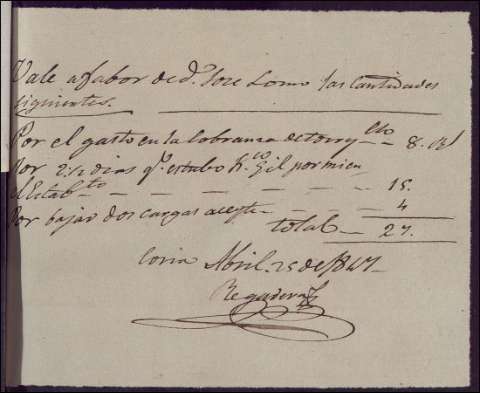 Vale a fabor de d.n Jose Lomo las Cantidades
siguientes.
Por el gasto en la Cobranza de torry 8. rs
Por 2 1/2 dias q.e estubo Fr.co Gil por mi en
el Estab.to 15.
Por bajar dos cargas aceyte 4
total 27.
Coria Abril 25 de 1847
Regadera